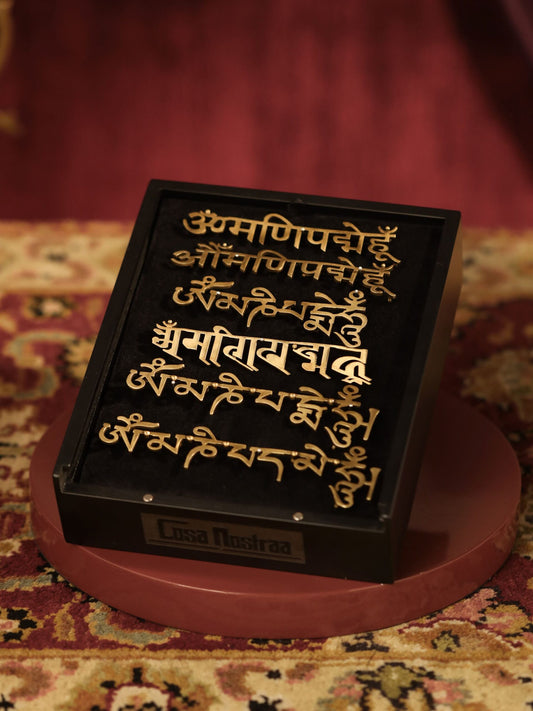 ॐमणिपद्मेहूँ
ओँमणिपद्मेहूँ
ཨོཾ་མ་ཎི་པདྨེ་ཧཱུྃ
ཨོཾ་མ་ཎི་པདྨེ་ཧཱུྃ
ཨོཾ་མ་ཎི་པདྨེ་ཧཱུྃ
Cosa Nostraa